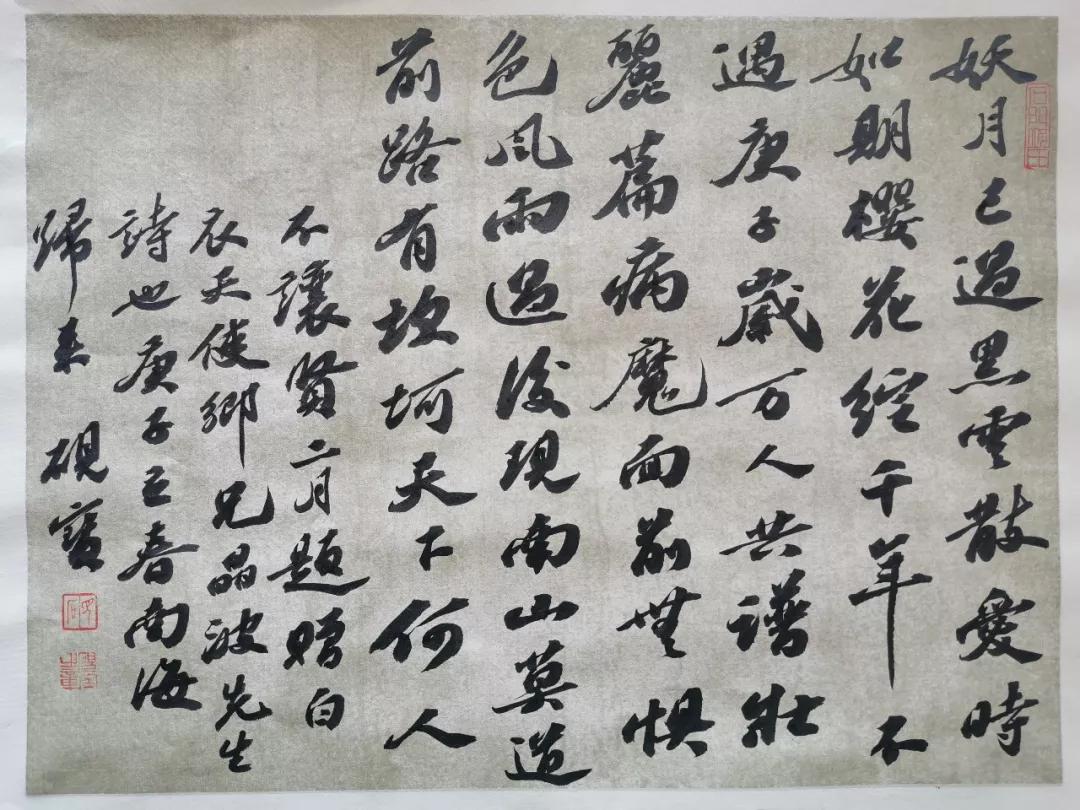 妖月已過黑雲散愛時
如期櫻花綻千年不
遇庚子歲万人共譜壯
麗篇病魔面前無惧
色風雨過後現南山莫道
前路有坎坷天下何人
不讓賢二月題贈白
衣天使鄉兄晶波先生
詩也庚子立春南海
歸来硯寶